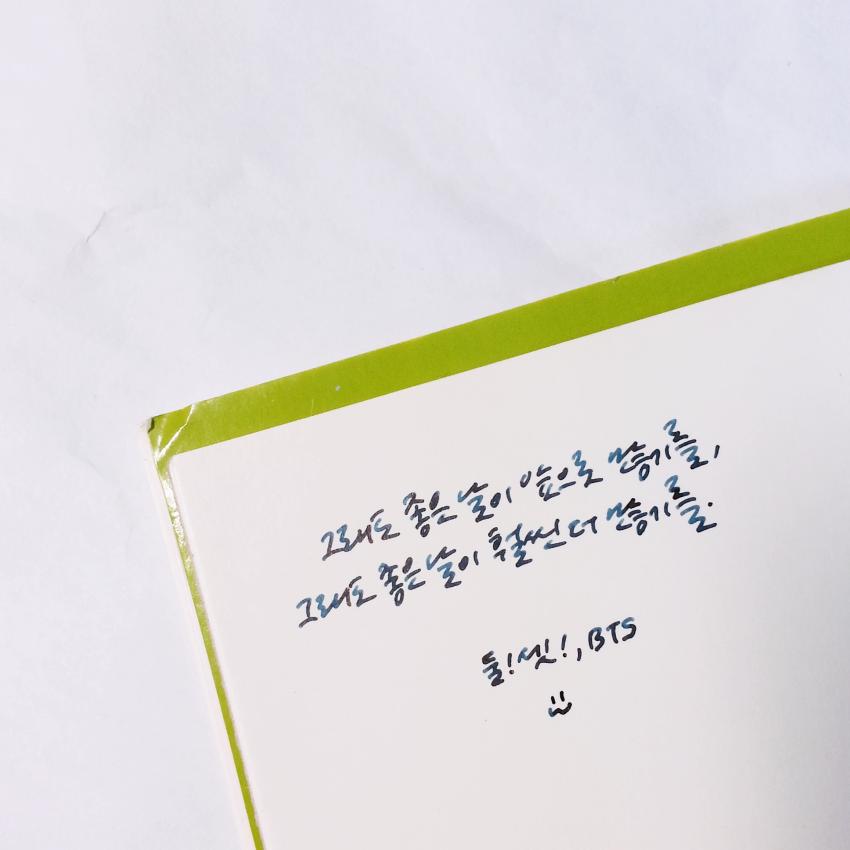 그래도 좋은 날이 앞으로 많기를,
그래도 좋은 날이 훨씬 더 많기를.
둘! 셋!, BTS